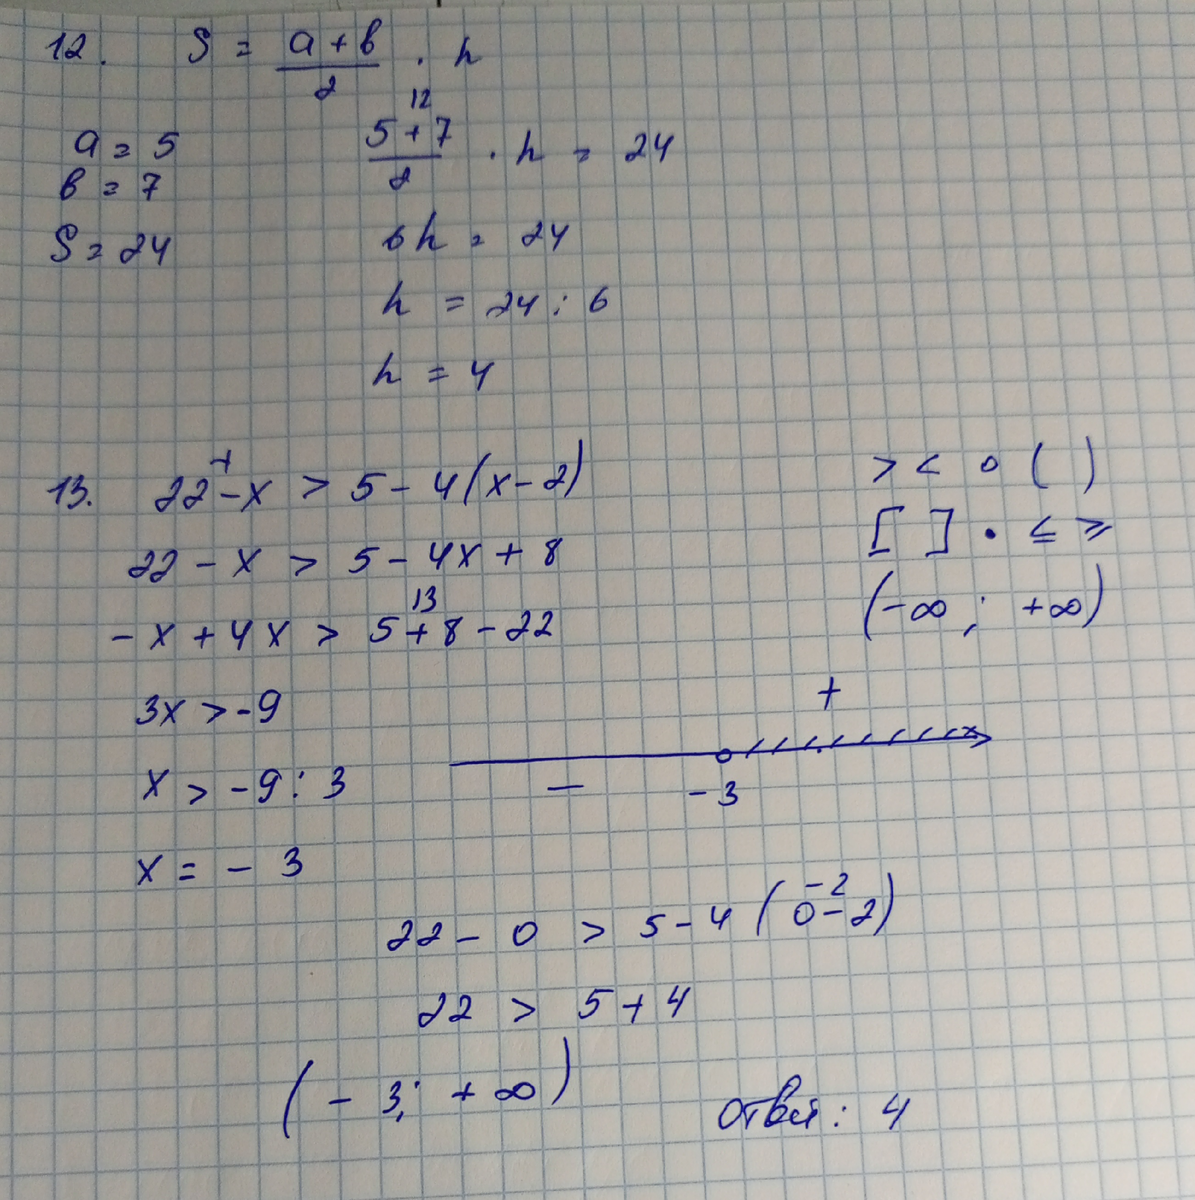 12. S = (a + b)/2 · h
a = 5
b = 7
S = 24
12
(5 + 7)/2 · h = 24
6h = 24
h = 24 : 6
h = 4
13. 22 - x > 5 - 4(x - 2)
22 - x > 5 - 4x + 8
13
- x + 4x > 5 + 8 - 22
3x > -9
x > -9 : 3
x = - 3
> < ∘ ( )
[ ] • ≤ ≥
(-∞ ; +∞)
+
— -3
-2
22 - 0 > 5 - 4 (0 - 2)
22 > 5 + 4
(- 3; + ∞)
Ответ: 4